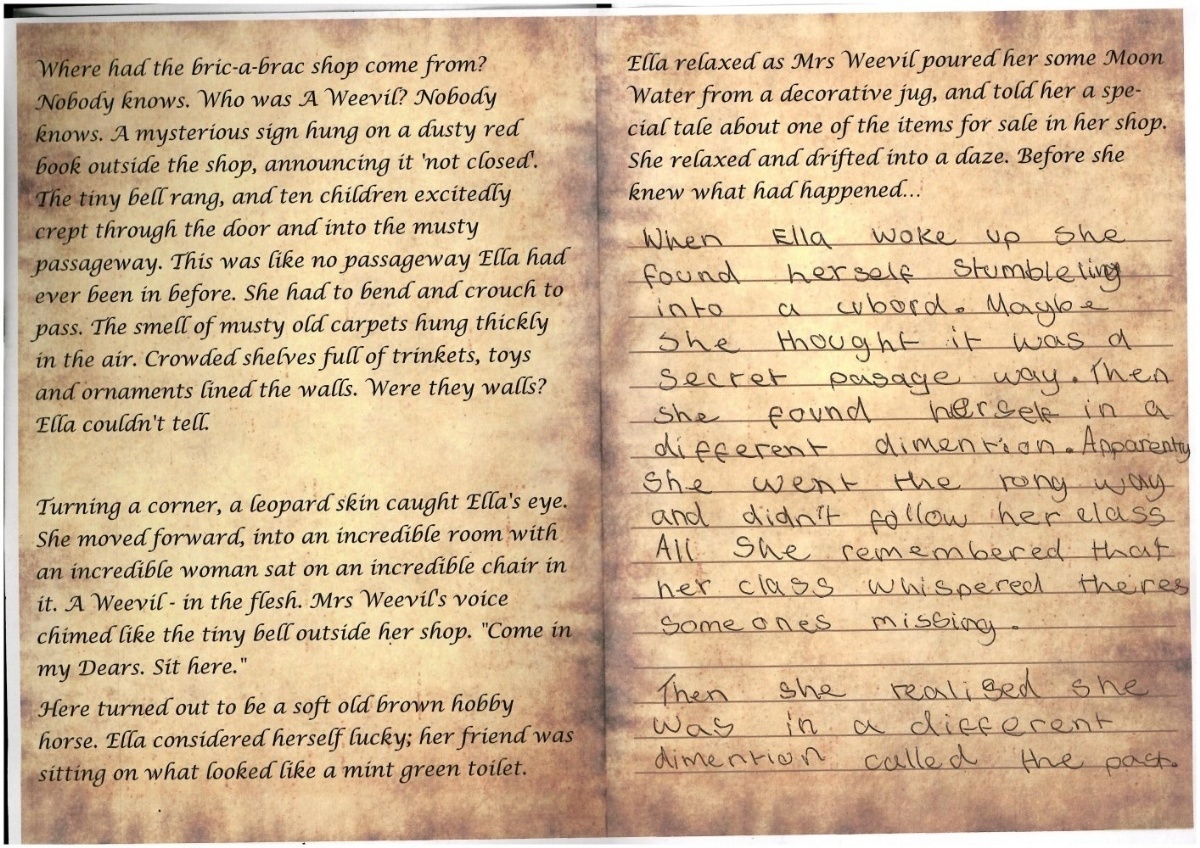 Where had the bric-a-brac shop come from?
Nobody knows. Who was A Weevil? Nobody
knows. A mysterious sign hung on a dusty red
book outside the shop, announcing it 'not closed'.
The tiny bell rang, and ten children excitedly
crept through the door and into the musty
passageway. This was like no passageway Ella had
ever been in before. She had to bend and crouch to
pass. The smell of musty old carpets hung thickly
in the air. Crowded shelves full of trinkets, toys
and ornaments lined the walls. Were they walls?
Ella couldn't tell.
Turning a corner, a leopard skin caught Ella's eye.
She moved forward, into an incredible room with
an incredible woman sat on an incredible chair in
it. A Weevil - in the flesh. Mrs Weevil's voice
chimed like the tiny bell outside her shop. "Come in
my Dears. Sit here."
Here turned out to be a soft old brown hobby
horse. Ella considered herself lucky; her friend was
sitting on what looked like a mint green toilet.
Ella relaxed as Mrs Weevil poured her some Moon
Water from a decorative jug, and told her a spe-
cial tale about one of the items for sale in her shop.
She relaxed and drifted into a daze. Before she
knew what had happened...
When Ella woke up she
found herself Stumbleling
into a cubord. Maybe
she thought it was a
secret pasage way. Then
she found herself in a
different dimention. Apparently
she went the rong way
and didn't follow her class
All she remembered that
her class whispered theres
someones missing.
Then she realised she
was in a different
dimention called the past.